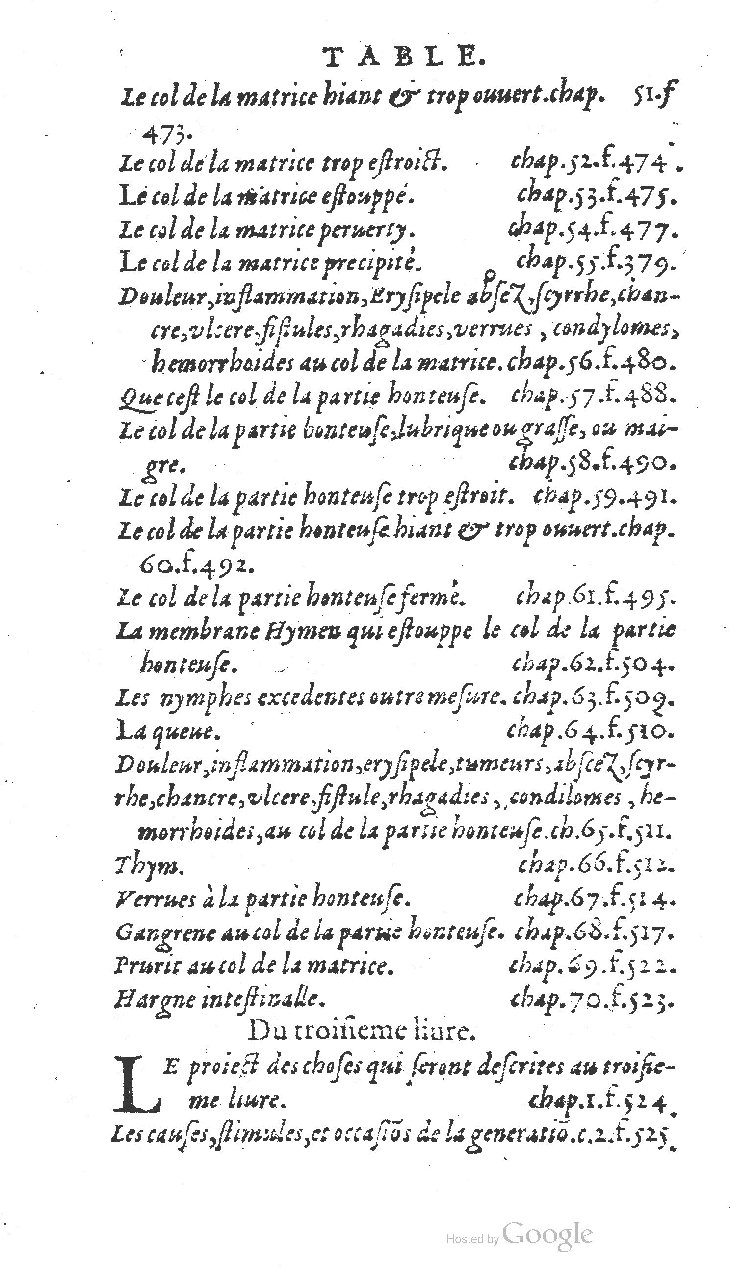 TABLE.
Le col de la matrice hiant & trop ouuert.chap. 51.f
473.
Le col de la matrice trop eſtroict. chap.52.f.474.
Le col de la matrice eſtouppé. chap.53.f.475.
Le col de la matrice peruerty. chap.54.f.477.
Le col de la matrice precipité. chap.55.f.379.
Douleur,inflammation,Eryſipele abſcez,ſcyrrhe,chan-
cre,vlcere,fiſtules,rhagadies,verrues , condylomes,
hemorrhoides au col de la matrice.chap.56.f.480.
Que ceſt le col de la partie honteuſe. chap.57.f.488.
Le col de la partie honteuſe,lubrique ou graſſe, ou mai-
gre. chap.58.f.490.
Le col de la partie honteuſe trop eſtroit. chap.59.491.
Le col de la partie honteuſe hiant & trop ouuert.chap.
60.f.492.
Le col de la partie honteuſe fermé. chap.61.f.495.
La membrane Hymen qui eſtouppe le col de la partie
honteuſe. chap.62.f.504.
Les nymphes excedentes outre meſure. chap.63.f.509.
La queue. chap.64.f.510.
Douleur,inflammation,eryſipele,tumeurs,abſcez,ſcyr-
rhe,chancre,vlcere,fiſtule,rhagadies, condilomes , he-
morrhoides,au col de la partie honteuſe.ch.65.f.511.
Thym. chap.66.f.512.
Verrues à la partie honteuſe. chap.67.f.514.
Gangrene au col de la partie honteuſe. chap.68.f.517.
Prurit au col de la matrice. chap.69.f.522.
Hargne inteſtinalle. chap.70.f.523.
Du troiſieme liure.
LE proiect des choſes qui ſeront deſcrites au troiſie-
me liure. chap.1.f.524.
Les cauſes,ſtimules,et occaſiōs de la generatiō.c.2.f.525.
Hosted by Google